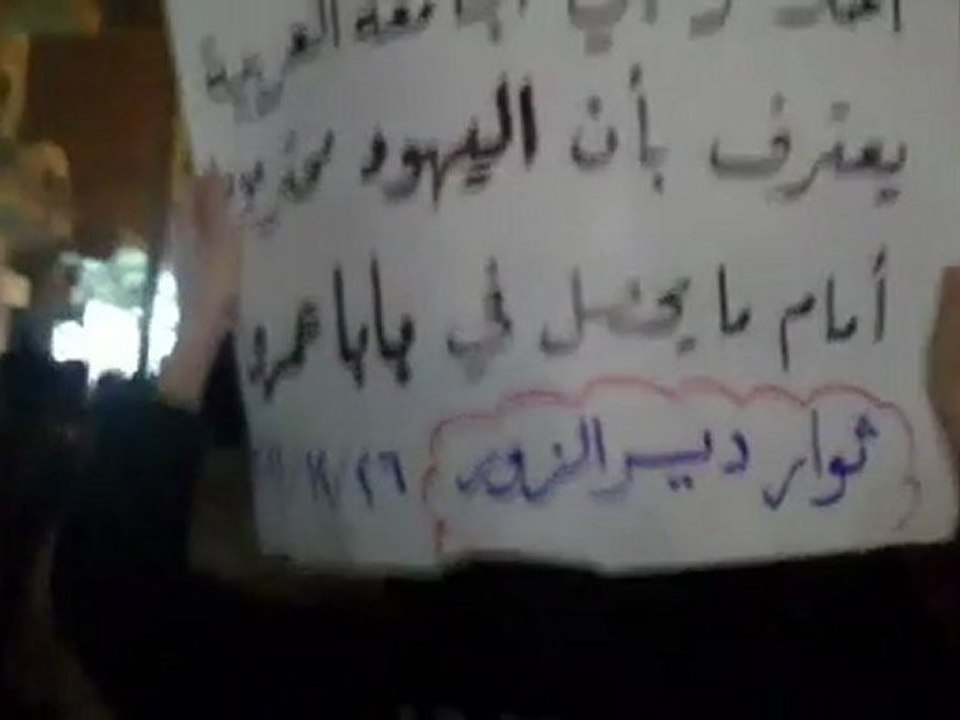 الجامعة العربية
يعترف بأن اليهود
أمام ما يحصل في بابا عمرو
ثوار دير الزور ٢٦